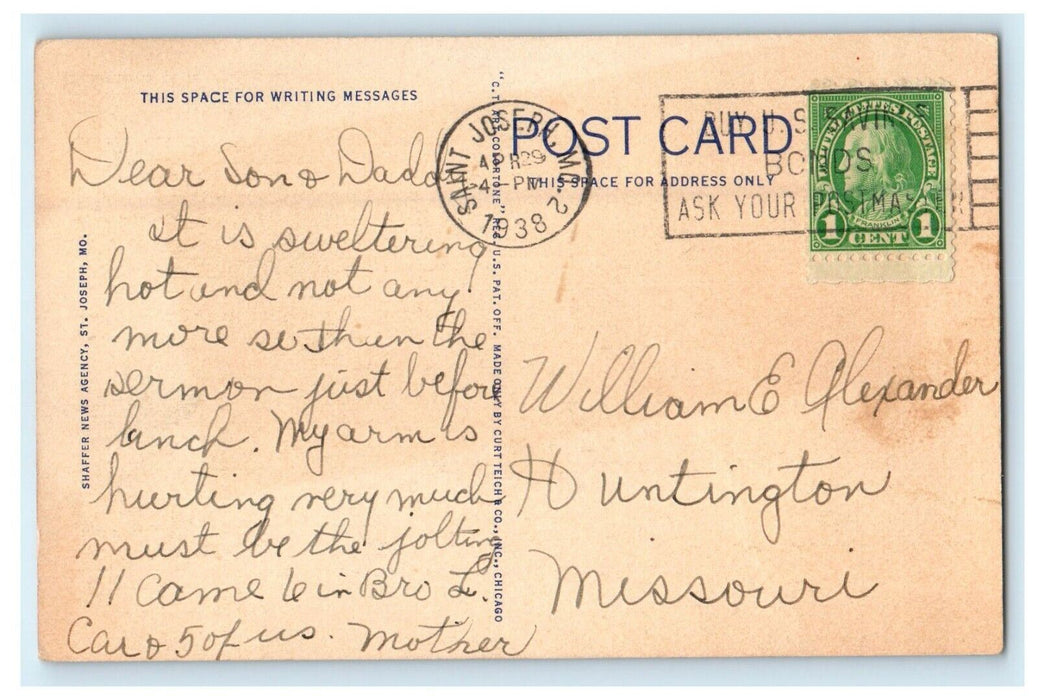 THIS SPACE FOR WRITING MESSAGES
Dear Son & Dad
it is sweltering
hot and not any
more so than the
sermon just before
lunch. My arm is
hurting very much
must be the jolting
11 came 6 in Bro L.
Car & 5 of us. Mother
SHAFFER NEWS AGENCY, ST. JOSEPH, MO.
"C.T. ART-COLORTONE" REG. U.S. PAT. OFF. MADE ONLY BY CURT TEICH & CO., INC., CHICAGO
POST CARD
THIS SPACE FOR ADDRESS ONLY
SAINT JOSEPH, MO. 2
APR 29
4 - PM
1938
BUY U.S. SAVINGS
BONDS
ASK YOUR POSTMASTER
UNITED STATES POSTAGE
FRANKLIN
1 CENT 1
William E Alexander
Huntington
Missouri